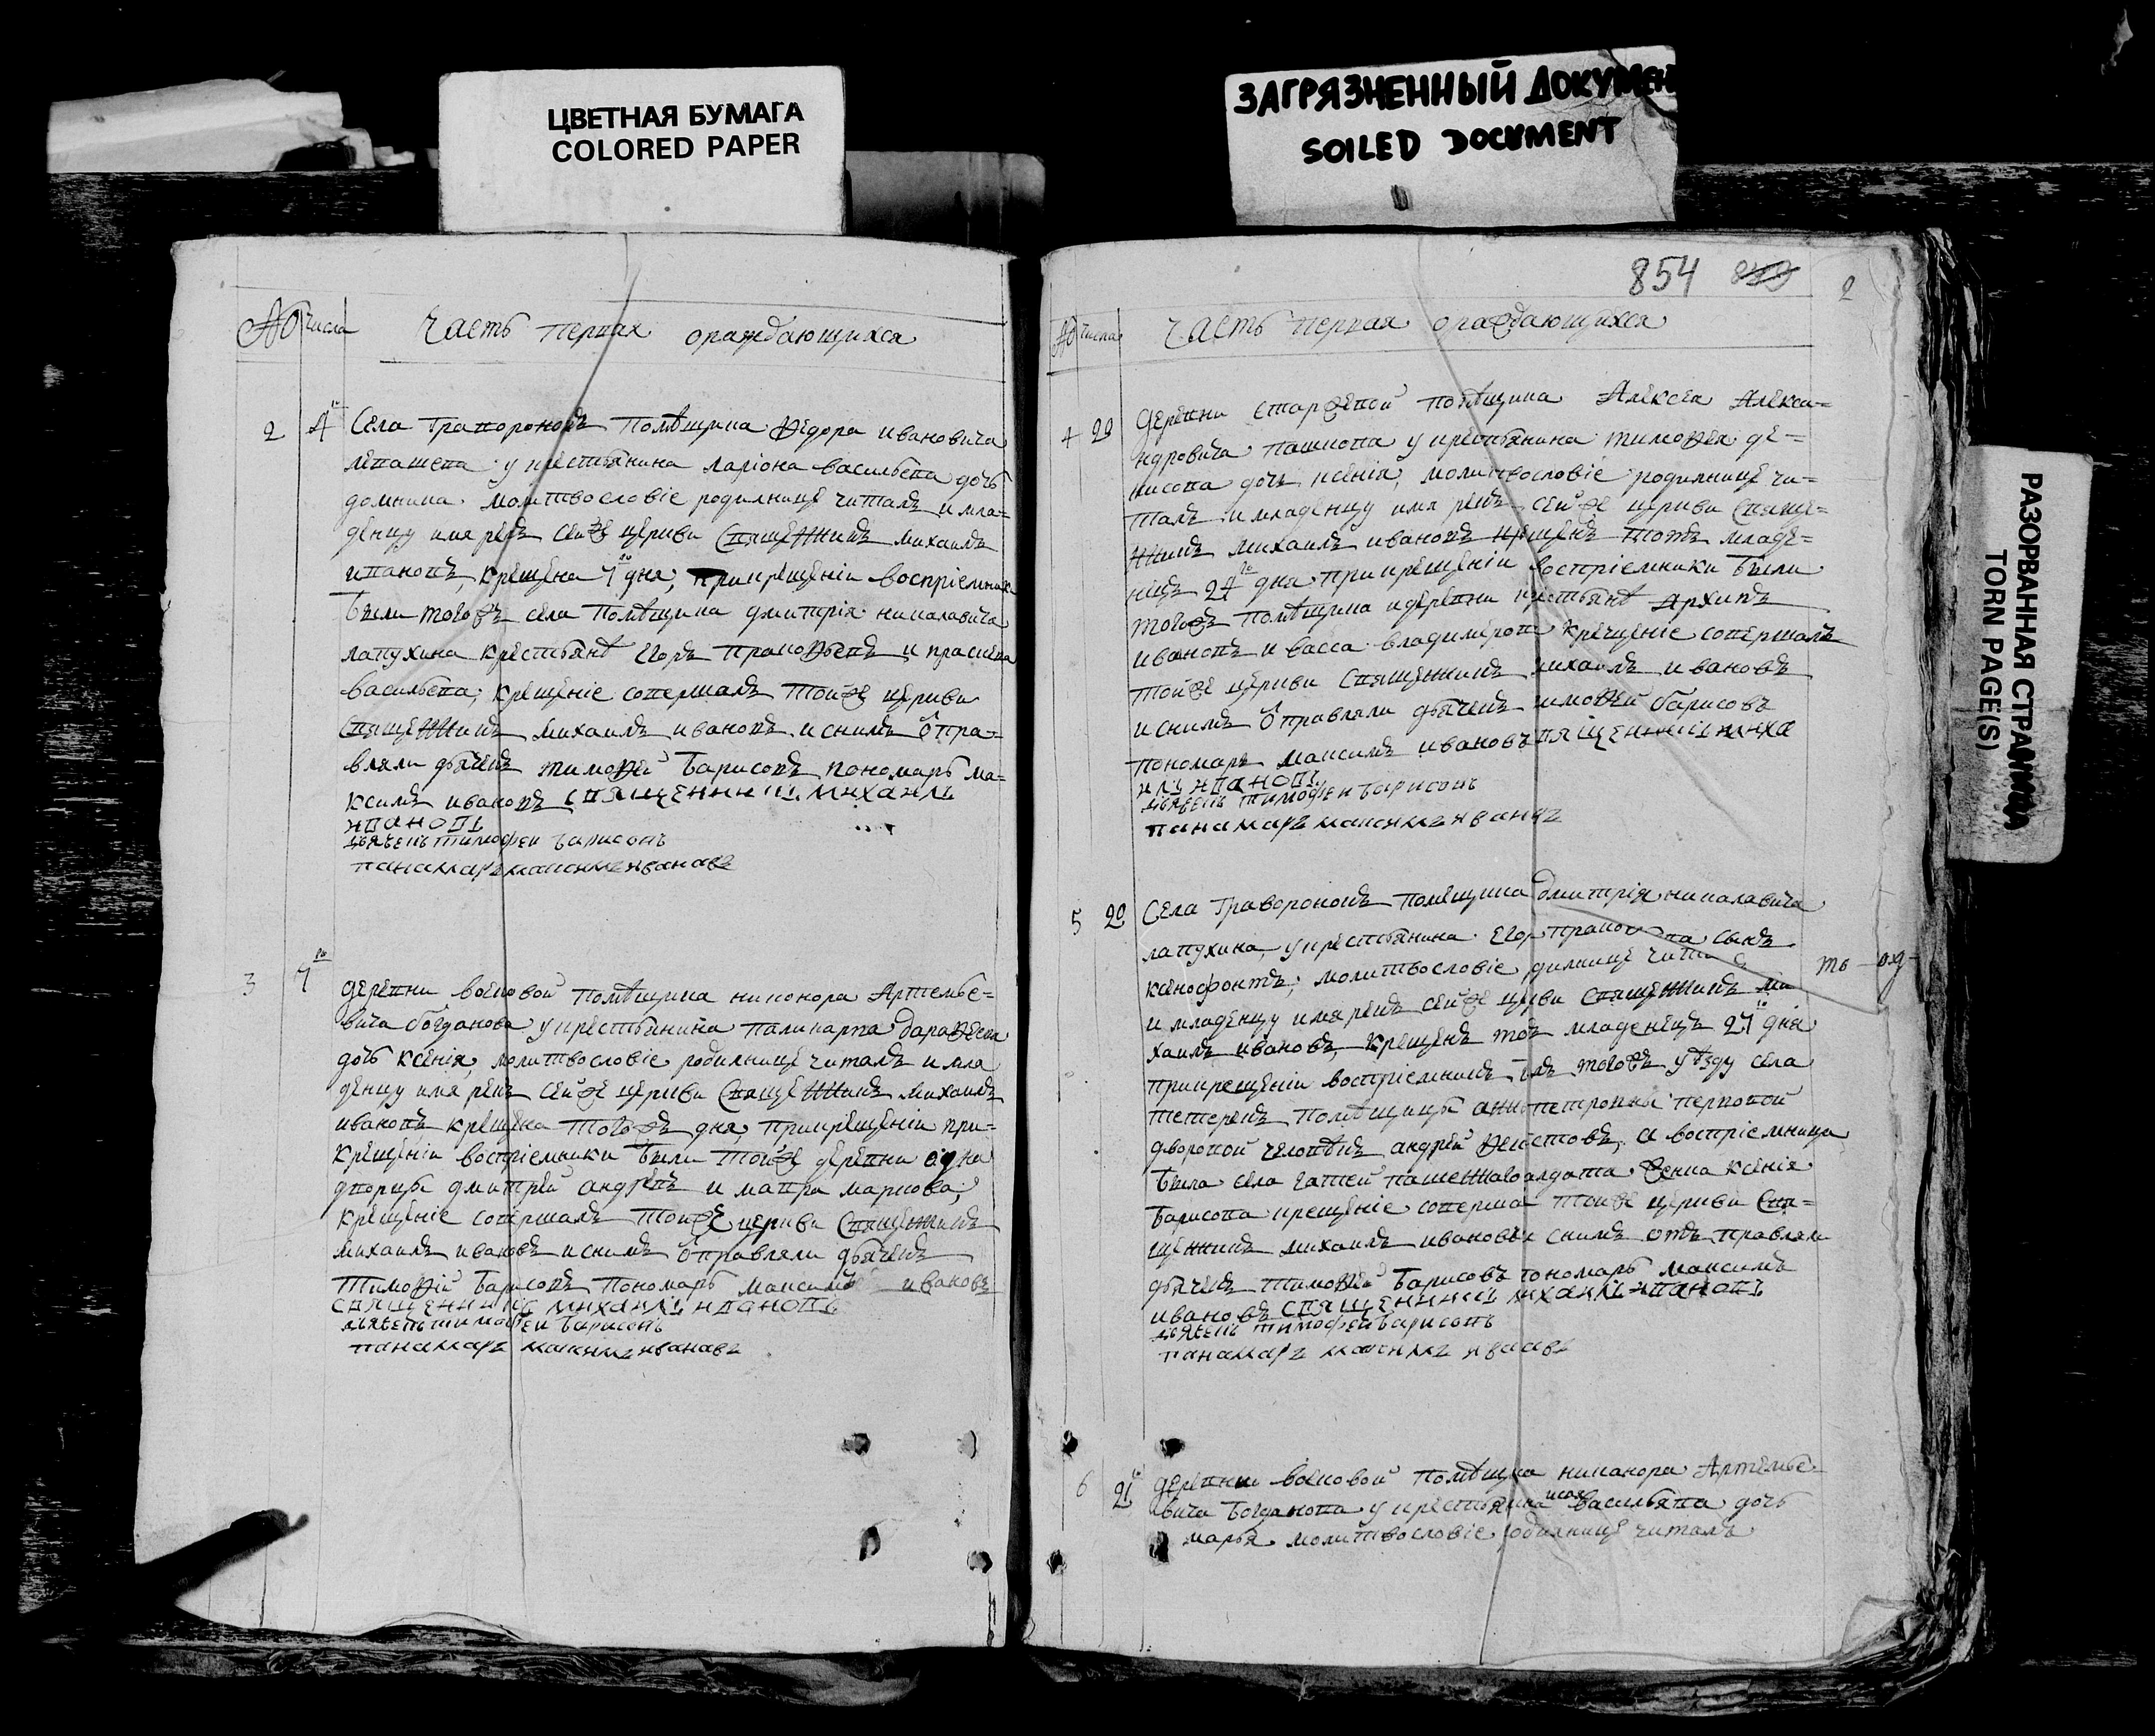 ЦВЕТНАЯ БУМАГА
COLORED PAPER
ЗАГРЯЗНЕННЫЙ ДОКУМЕН
SOILED DOCUMENT
РАЗОРВАННАЯ СТРАНИЦА
TORN PAGE(S)
№ числа Часть первая ораждающихся
2 4 Села Траворонокъ помѣщика Ѳедора ивановича
левашева у крестьянина лариона васильева дочь
домника. молитвословіе родилницѣ читалъ и мла=
денцу имя рекъ сей же церкви Священникъ михаилъ
ивановъ, крещена 7го дня, при крещеніи воспріемники
были тогожъ села помѣщика дмитрія николавича
лапухина крестьянѣ Егоръ пракофьевъ и прасковья
васильева, крещеніе совершалъ той же церкви
Священникъ михаилъ ивановъ и снимъ отпра=
вляли дьячекъ тимофей барисовъ пономарь ма=
ксимъ ивановъ священникъ михаилъ
ивановъ
дьячекъ тимофеи барисовъ
панамарь максимъ иванавъ
3 7го деревни воековой помѣщика никонора Артемье=
вича богданова у крестьянина паликарпа дарафеева
дочь ксенія, молитвословіе родилницѣ читалъ и мла
денцу имя рекъ сей же церкви Священникъ михаилъ
ивановъ крещена тогожъ дня, прикрещеніи при=
крещеніи воспріемники были той же деревни одно
дворцы дмитрей андреевъ и мавра маркова;
крещеніе совершалъ той же церкви Священникъ
михаилъ ивановъ и снимъ отправляли дьячекъ
тимофій барисовъ пономарь максимъ ивановъ
священникъ михаилъ ивановъ
дьячекъ тимофеи барисовъ
панамарь максимъ иванавъ
854 2
№ числа Часть первая ораждающихся
4 20 Деревни старжевой помѣщика Алексея Алекса=
ндровича пашкова у крестьянина тимофея де=
нисова дочь ксенія, молитвословіе родилницѣ чи=
талъ и младенцу имя рекъ сей же церкви Свяще=
нникъ михаилъ ивановъ крещенъ тотъ младе=
нецъ 24го дня прикрещеніи воспріемники были
тогожъ помѣщика и деревни крестьянѣ Архипъ
ивановъ и васса владимірова крещеніе совершалъ
той же церкви Священникъ михаилъ ивановъ
и снимъ отправляли дьячекъ тимофей барисовъ
пономарь максимъ ивановъ священникъ миха
илъ ивановъ
дьячекъ тимофеи барисовъ
панамарь максимъ иванавъ
5 20 Села Траворонокъ помѣщика дмитрія николавича
лапухина, у крестьянина Егор прако ва сынъ
ксенофонтъ; молитвословіе дилницѣ чита
и младенцу имя рекъ сей же цркви Священникъ ми
хаилъ ивановъ, крещенъ тотъ младенецъ 21го дня
прикрещеніи воспріемникъ былъ тогожъ уѣзду села
тетеревъ помѣщицы анны петровны перповой
дворовой человѣкъ андрей феистовъ, а воспріемница
была села жена ксенія
барисова крещеніе соверша той же церкви Свя=
щенникъ михаилъ ивановъ и снимъ отъправляли
дьячекъ тимофей барисовъ пономарь максимъ
ивановъ священникъ михаилъ ивановъ
дьячекъ тимофеи барисовъ
панамарь максимъ
6 21го деревни воековой помѣщика никанора Артемье
вича богданова у крестьянина исая васильява дочь
марья молитвословіе родилницѣ читалъ